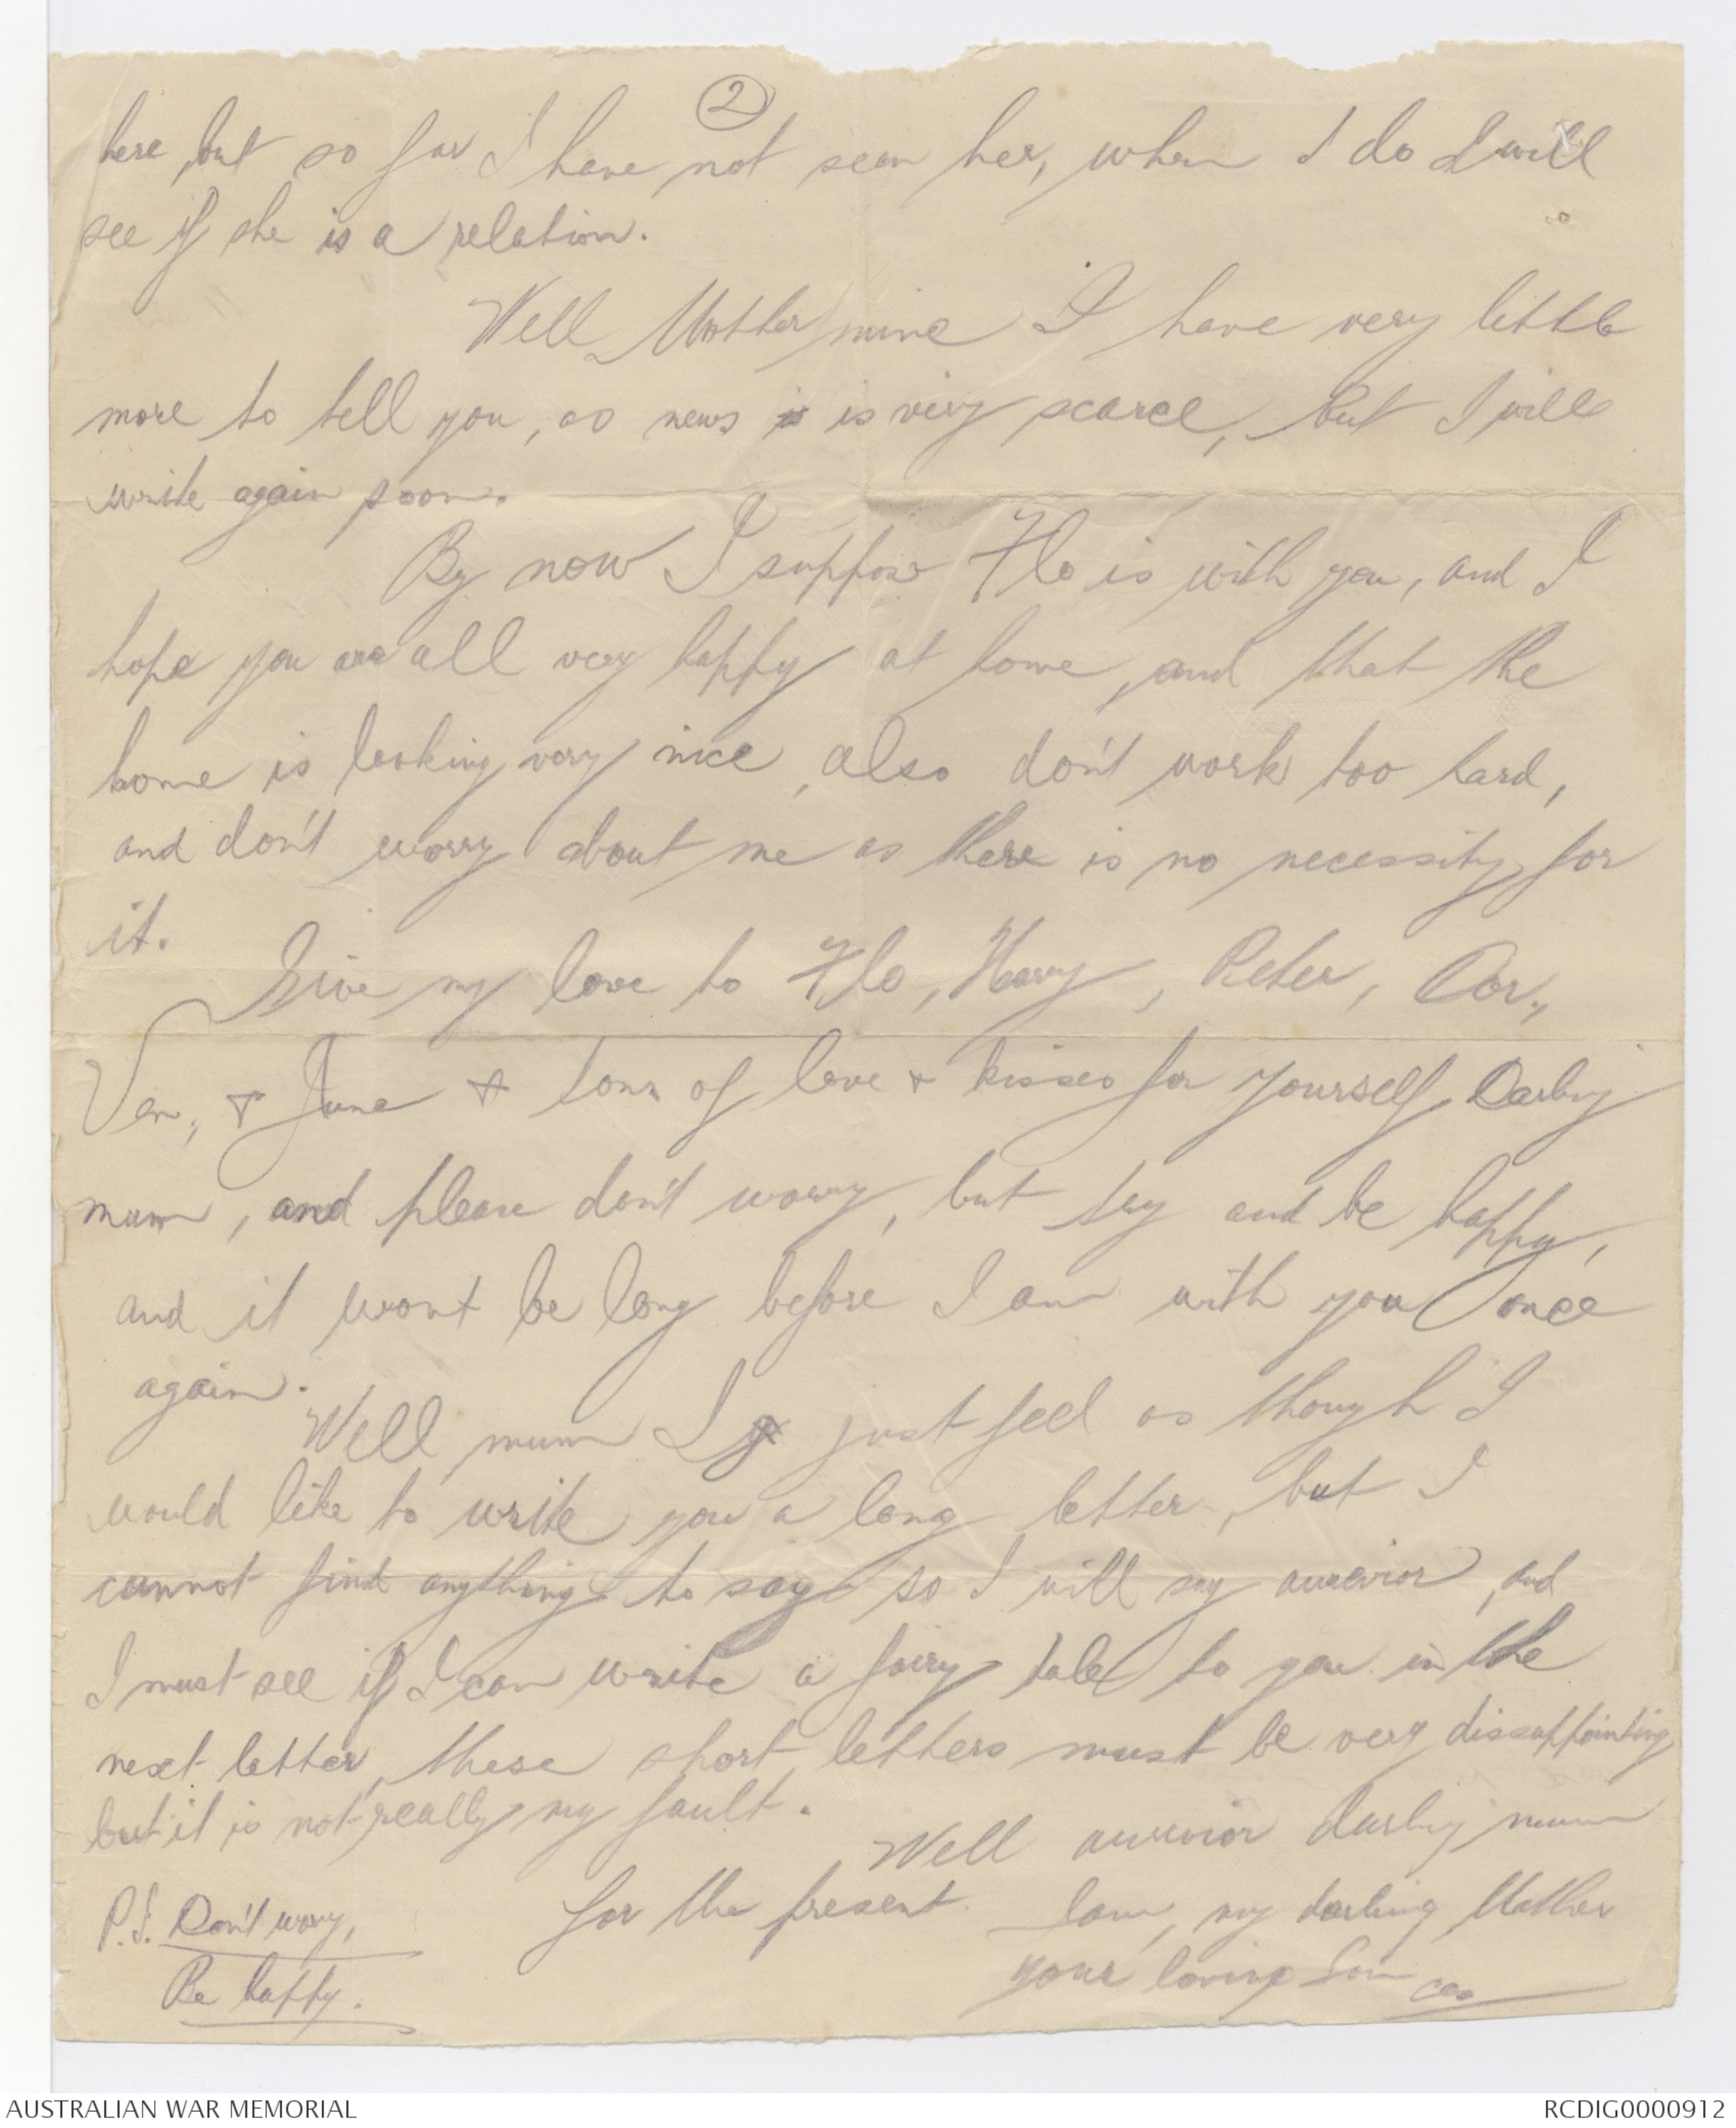 2
here, but so far I have not seen her, when I do I will
see if she is a relation.
Well Mother mine I have very little
more to tell you, as news is is very scarce, but I will
write again soon.
By now I suppose Flo is with you, and I
hope you are all very happy at home, and that the
home is looking very nice, also don't work too hard,
and don't worry about me as there is no necessity for
it.
Give my love to Flo, Harry, Peter, Dor.,
Ven., & June & tons of love & kisses for yourself Darling
mum, and please don't worry, but try and be happy,
and it wont be long before I am with you once
again.
Well mum I just feel as though I
would like to write you a long letter, but I
cannot find anything to say so I will say aurevior, and
I must see if I can write a fairy tale to you in the
next letter, these short letters must be very dissappointing
but it is not really my fault.
Well aurevior darling mum
for the present.
I am, my darling Mother
your loving Son
P.S. Don't worry,
Be happy.
AUSTRALIAN WAR MEMORIAL
RCDIG0000912